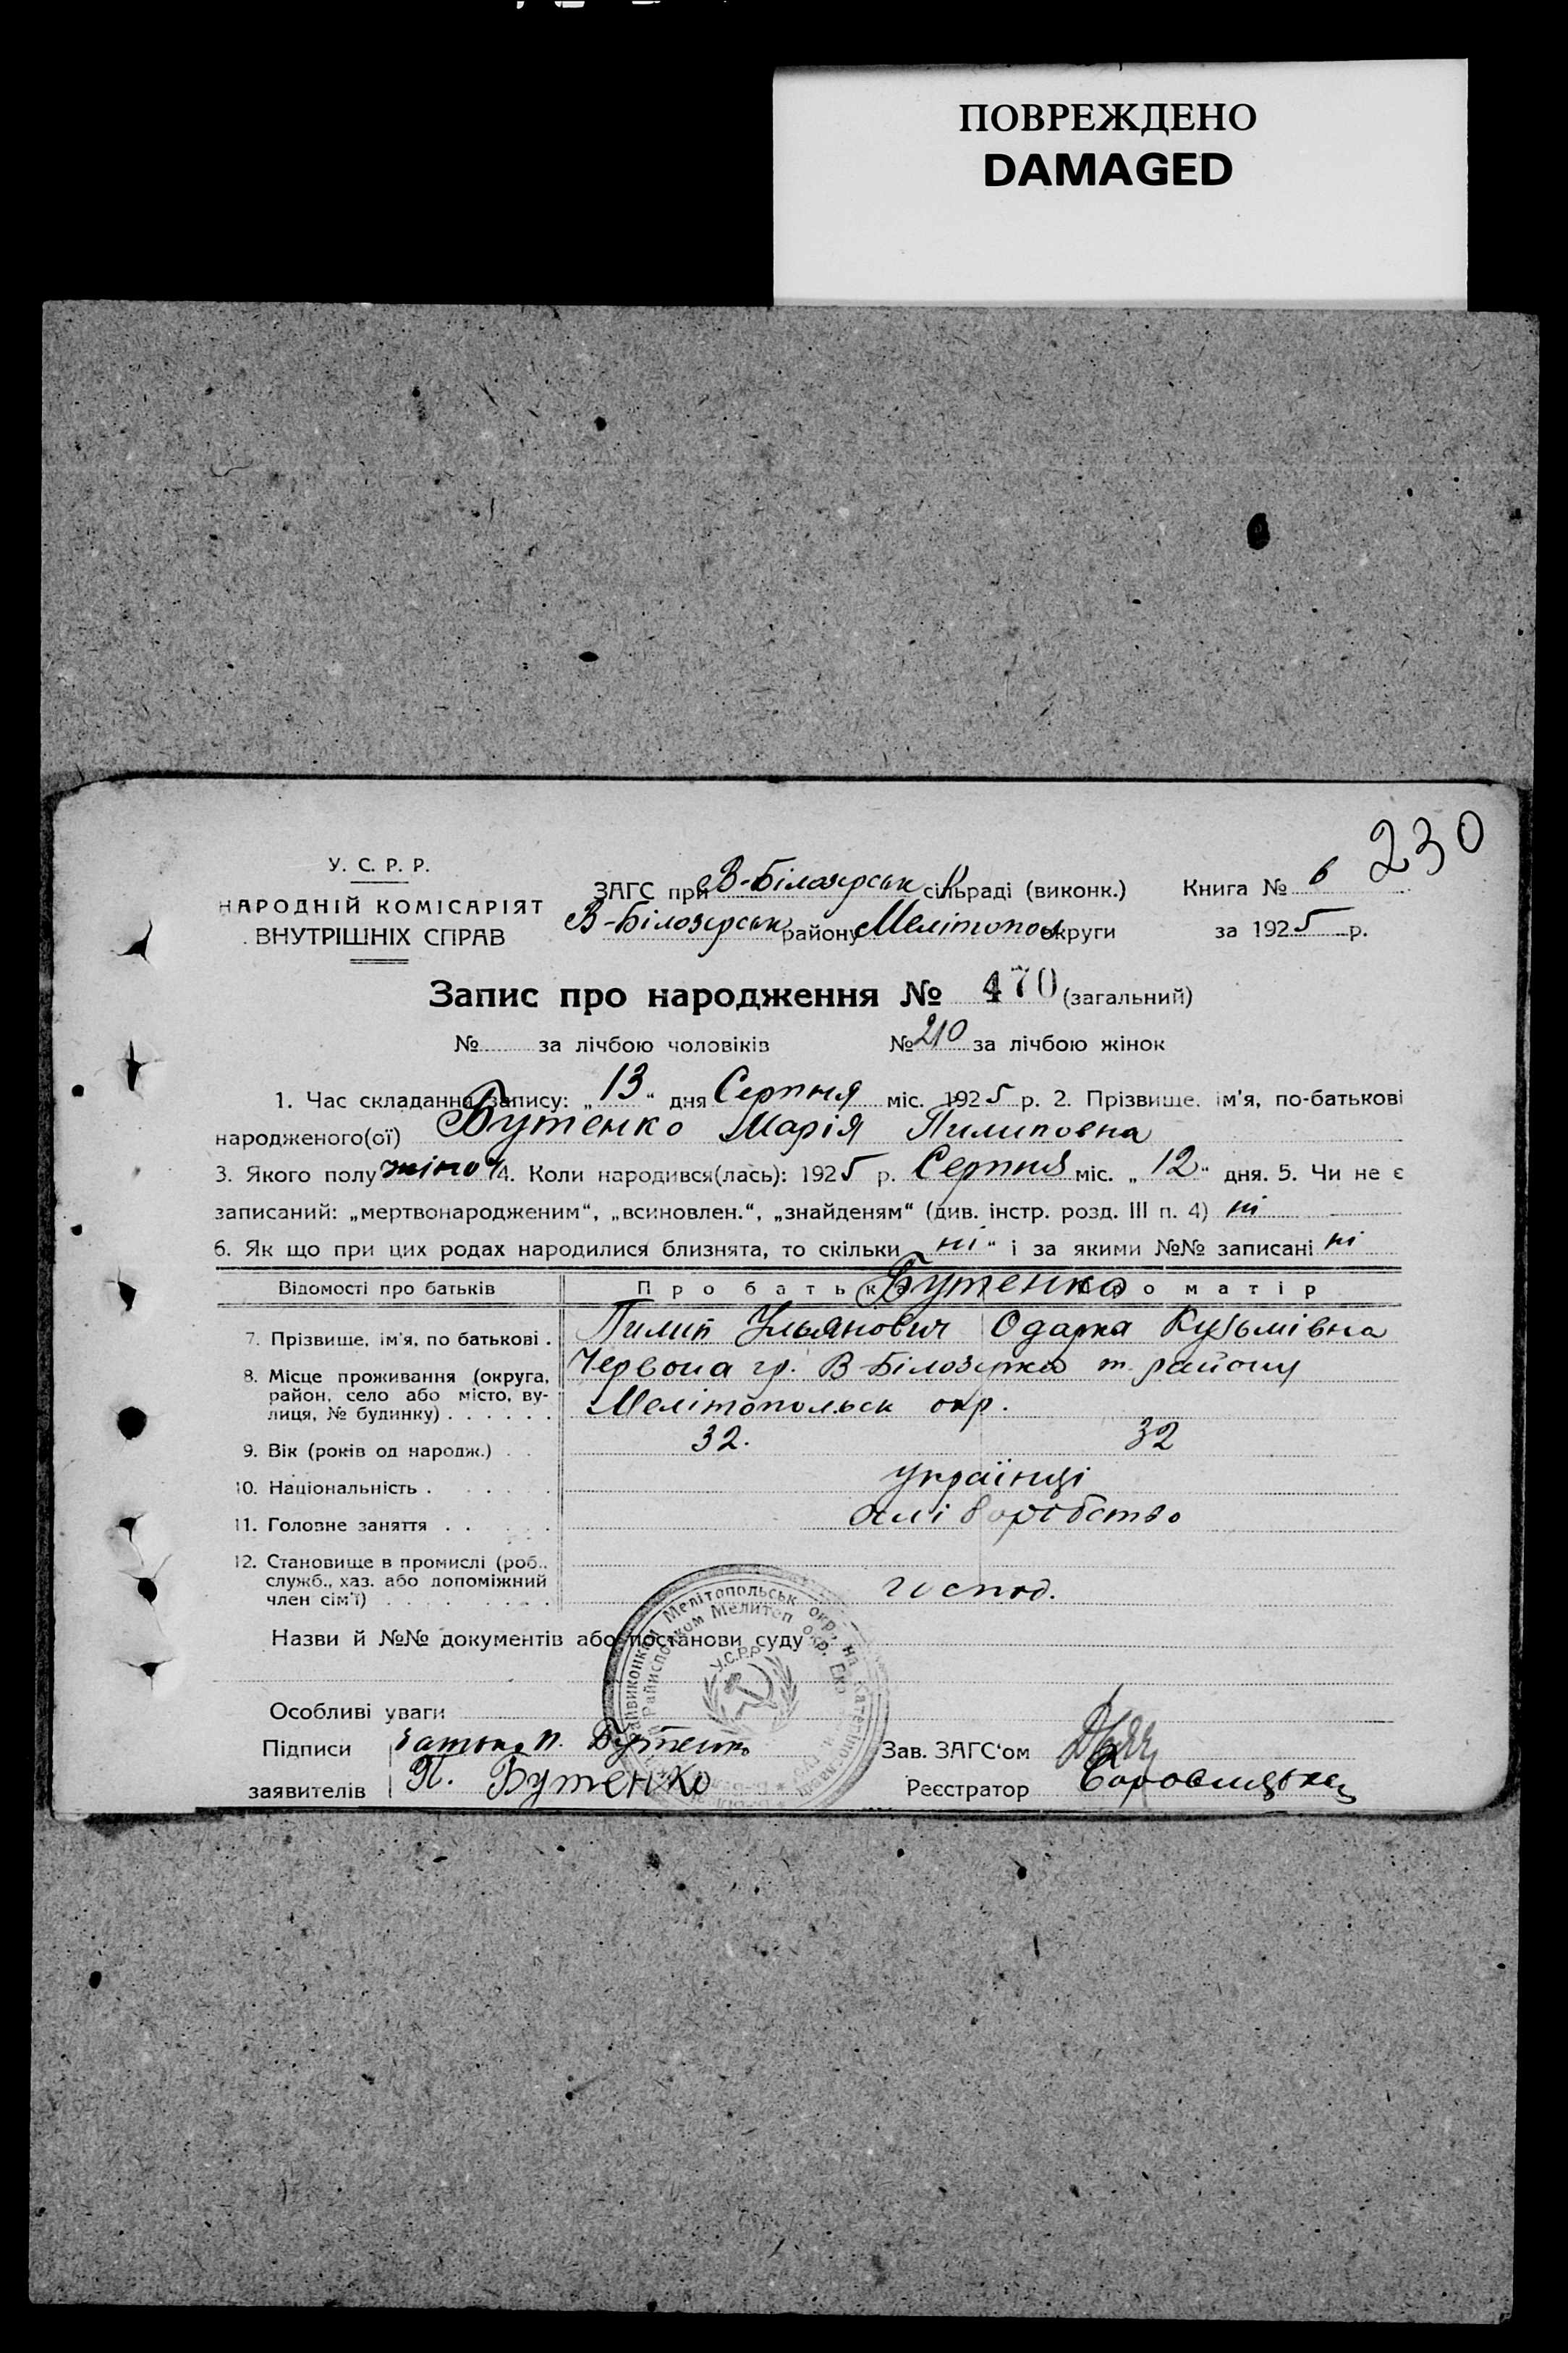 ПОВРЕЖДЕНО
DAMAGED
230
У. С. Р. Р.
НАРОДНІЙ КОМІСАРІЯТ
ВНУТРІШНІХ СПРАВ
ЗАГС при В-Білозерськ сільраді (виконк.) Книга № 6
В-Білозерськ району Мелітопол округи за 1925 р.
Запис про народження № 470 (загальний)
№ за лічбою чоловіків № 210 за лічбою жінок
1. Час складання запису: „13“ дня Серпня міс. 1925 р. 2. Прізвище, ім'я, по-батькові
народженого(ої) Бутенко Марія Пилиповна
3. Якого полу жіноч 4. Коли народився(лась): 1925 р. Серпня міс. „12“ дня. 5. Чи не є
записаний: „мертвонародженим“, „всиновлен.“, „знайденям“ (див. інстр. розд. III п. 4) ні
6. Як що при цих родах народилися близнята, то скільки „ні“ і за якими №№ записані ні
Відомості про батьків Про батька Бутенко Про матір
7. Прізвище, ім'я, по батькові . Пилип Ульянович Одарка Кузьмівна
8. Місце проживання (округа, район, село або місто, вулиця, № будинку) . . . . . . Червона гр. В-Білозірка т. району
Мелітопольск окр.
9. Вік (років од народж.) . . 32. 32
10. Національність . . . . . українці
11. Головне заняття . . . . . хліборобство
12. Становище в промислі (роб., служб., хаз. або допоміжний член сім'ї) . . . . . . . . господ.
Назви й №№ документів або постанови суду
Особливі уваги
Підписи батько П. Бутенко Зав. ЗАГС'ом
заявителів П. Бутенко Реєстратор
Мелітопольськ окр. на Катеринославщ
Райисполком Мелитоп окр.
У.С.Р.Р.